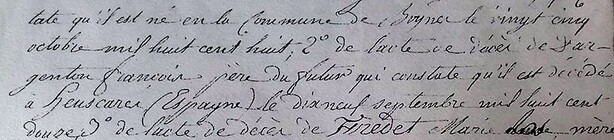 tate qu'il est né en la Commune de Boynes le vingt cinq
octobre mil huit cent huit; 2° de l'acte de décès de d'ar-
genton françois père du futur qui constate qu'il est décédé
à heuscarei (Espagne) le dix neuf septembre mil huit cent
douze, 3° de l'acte de décès de Fredet Marie mère